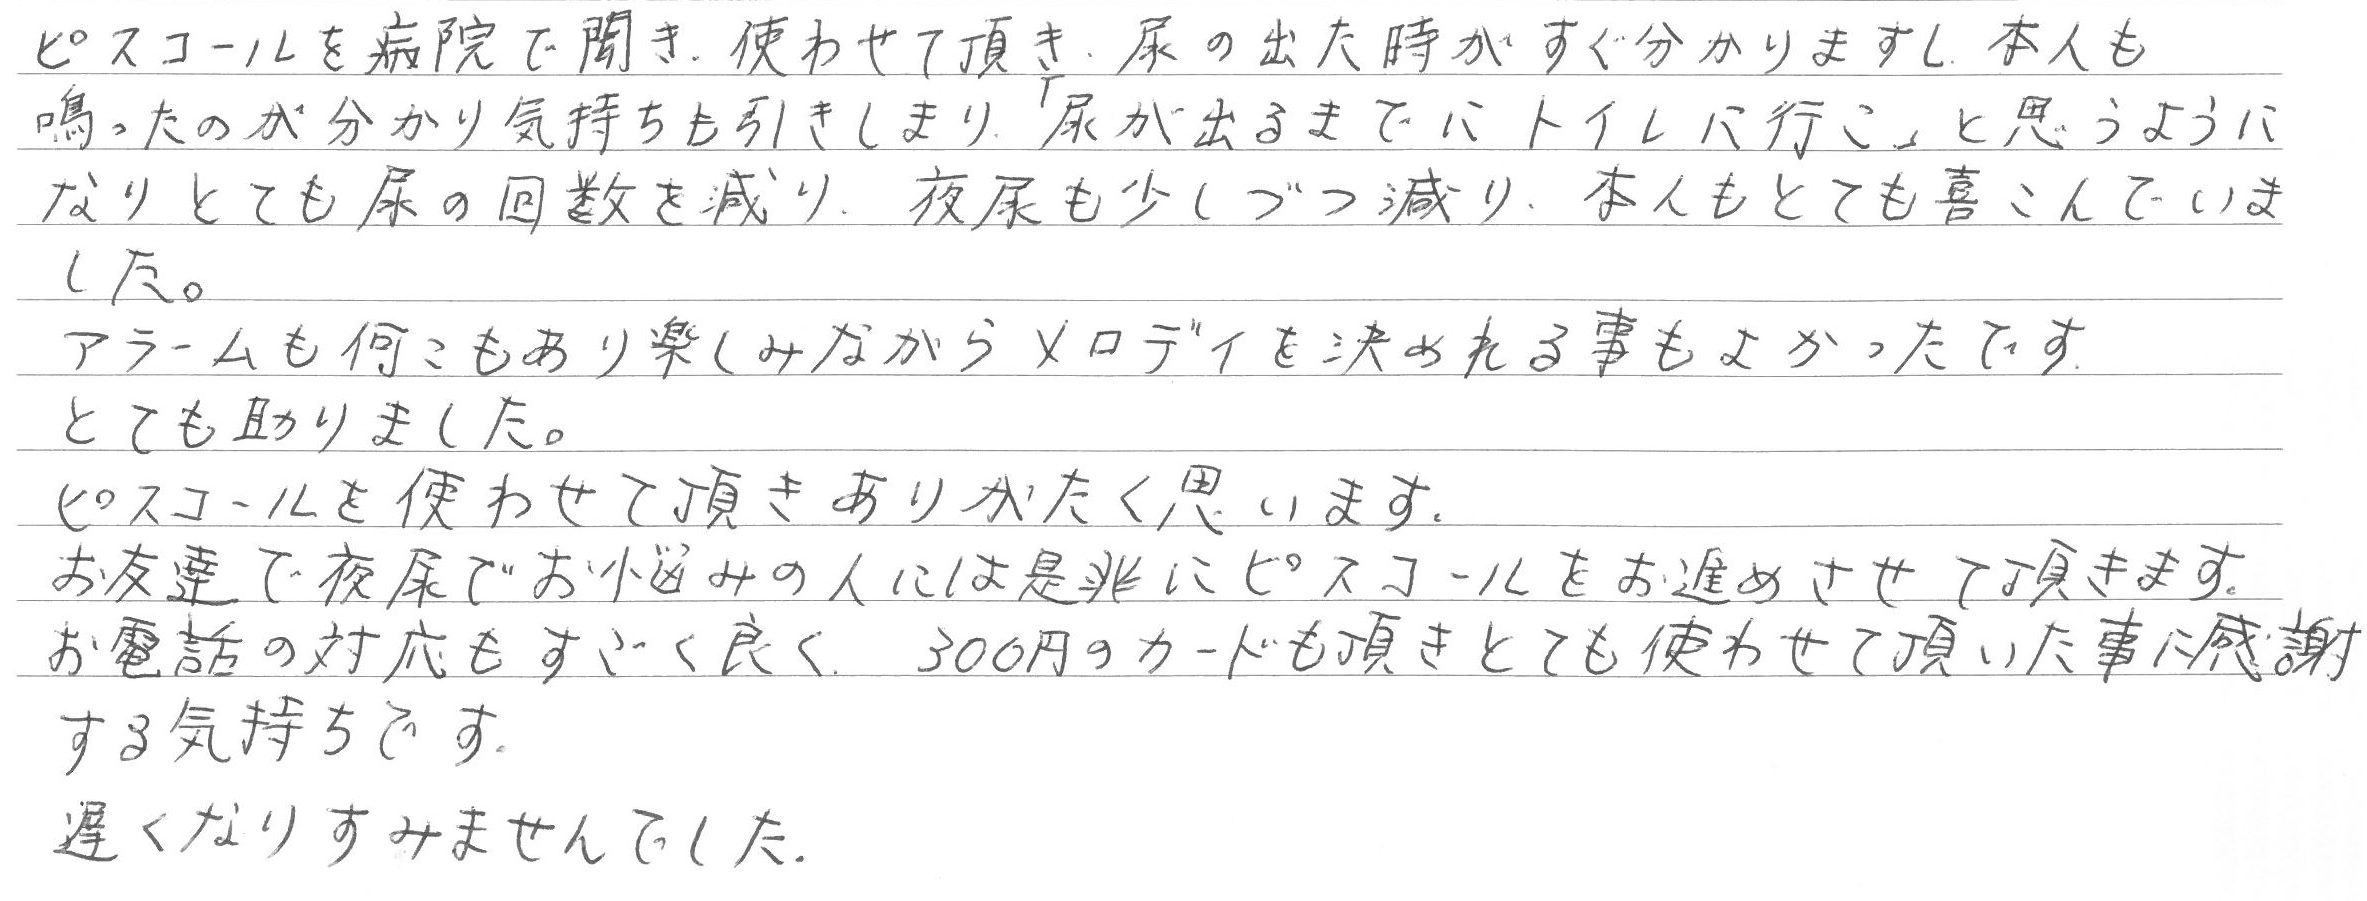 ピスコールを病院で聞き、使わせて頂き、尿の出た時がすぐ分かりますし、本人も
鳴ったのが分かり気持ちも引きしまり、「尿が出るまでにトイレに行こ」と思うように
なりとても尿の回数を減り、夜尿も少しづつ減り、本人もとても喜こんでいま
した。
アラームも何こもあり楽しみながらメロディを決めれる事もよかったです。
とても助りました。
ピスコールを使わせて頂きありがたく思います。
お友達で夜尿でお悩みの人には是非にピスコールをお進めさせて頂きます。
お電話の対応もすごく良く、300円のカードも頂きとても使わせて頂いた事に感謝
する気持ちです。
遅くなりすみませんでした。